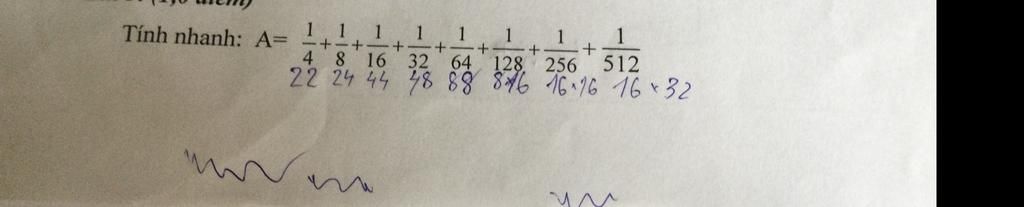 Tính nhanh: A= 1/4 + 1/8 + 1/16 + 1/32 + 1/64 + 1/128 + 1/256 + 1/512
22 24 44 48 88 8×16 16×16 16×32